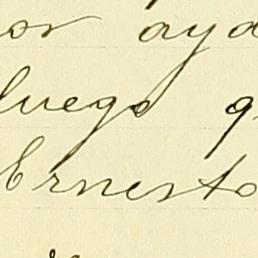 or ayd
luego q
Ernesto